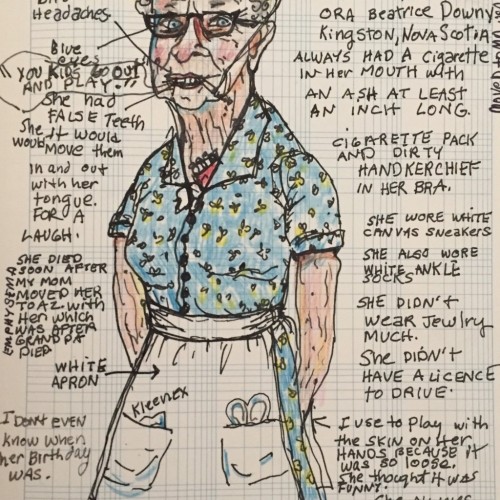 Headaches.
Blue
eyes
"YOU KIDS GO OUT
AND PLAY!"
She had
FALSE TEETH
She would
move them
in and out
with her
tongue.
FOR A
LAUGH.
SHE DIED
SOON AFTER
MY MOM
MOVED HER
TO AZ WITH
Her which
WAS AFTER
GRANDPA
DIED
EMPHYSEMA
WHITE
APRON
I DONT EVEN
know when
her Birthday
WAS.
Kleenex
ORA Beatrice Downy
Kingston, Nova Scotia
ALWAYS HAD A cigarette
IN Her MOUTH with
AN ASH AT LEAST
AN INCH LONG.
CIGARETTE PACK
AND DIRTY
HANDKERCHIEF
IN HER BRA.
SHE WORE WHITE
CANVAS SNEAKERS
SHE ALSO WORE
WHITE ANKLE
SOCKS
SHE DIDN'T
WEAR JEWLRY
MUCH.
She DIDN'T
HAVE A LICENCE
TO DRIVE.
I use to Play with
the SKIN ON Her
HANDS BECAUSE it
WAS SO loose.
She thought it WAS
FUNNY.